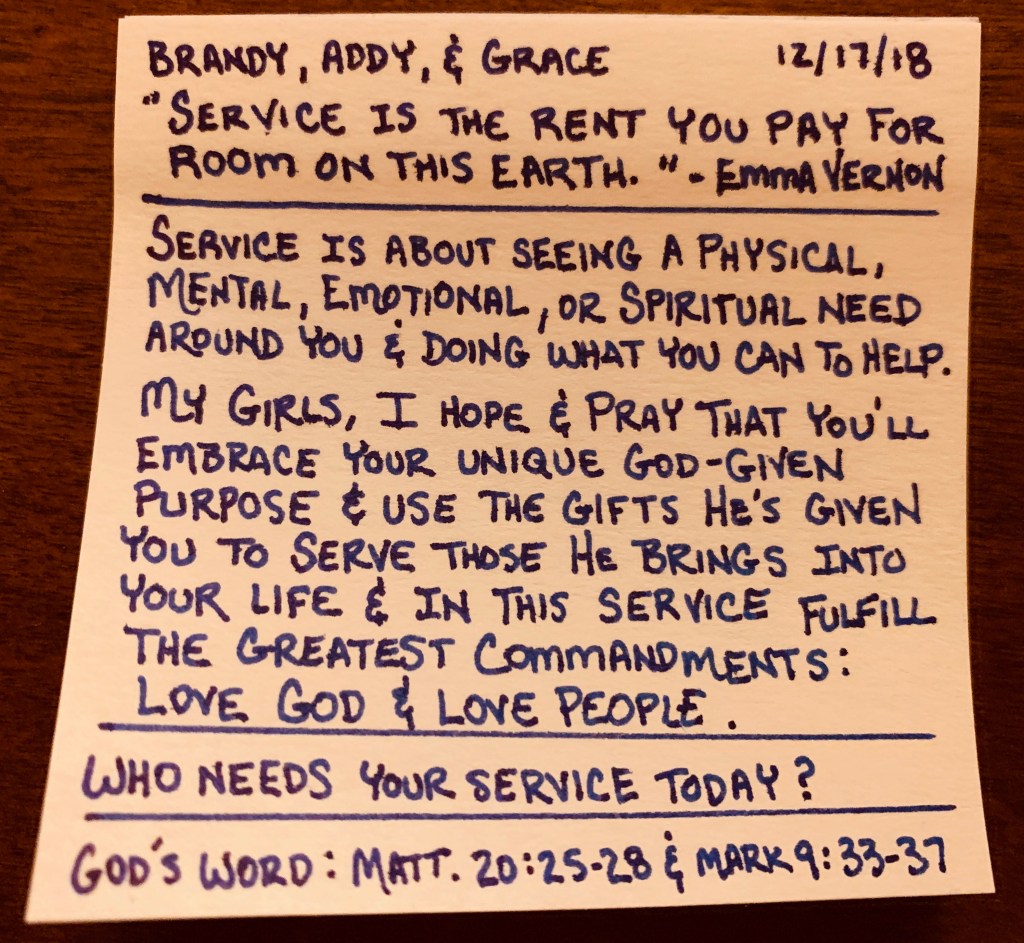 BRANDY, ADDY, & GRACE 12/17/18
"SERVICE IS THE RENT YOU PAY FOR
ROOM ON THIS EARTH." - EMMA VERNON
SERVICE IS ABOUT SEEING A PHYSICAL,
MENTAL, EMOTIONAL, OR SPIRITUAL NEED
AROUND YOU & DOING WHAT YOU CAN TO HELP.
MY GIRLS, I HOPE & PRAY THAT YOU'LL
EMBRACE YOUR UNIQUE GOD-GIVEN
PURPOSE & USE THE GIFTS HE'S GIVEN
YOU TO SERVE THOSE HE BRINGS INTO
YOUR LIFE & IN THIS SERVICE FULFILL
THE GREATEST COMMANDMENTS:
LOVE GOD & LOVE PEOPLE.
WHO NEEDS YOUR SERVICE TODAY?
GOD'S WORD: MATT. 20:25-28 & MARK 9:33-37